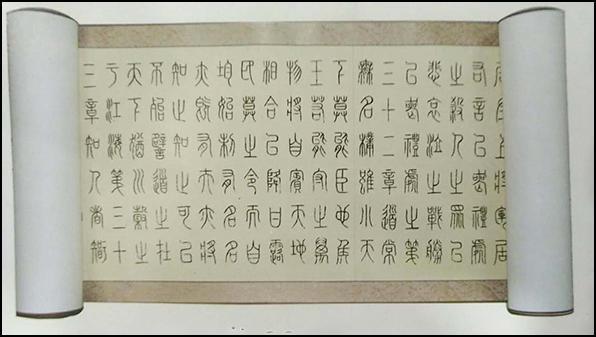 居左上將軍居
右言以喪禮處
之殺人之眾以
悲哀泣之戰勝
以喪禮處之第
三十二章道常
無名樸雖小天
下莫能臣也侯
王若能守之萬
物將自賓天地
相合以降甘露
民莫之令而自
均始制有名名
亦既有夫亦將
知止知止可以
不殆譬道之在
天下猶川谷之
于江海第三十
三章知人者智